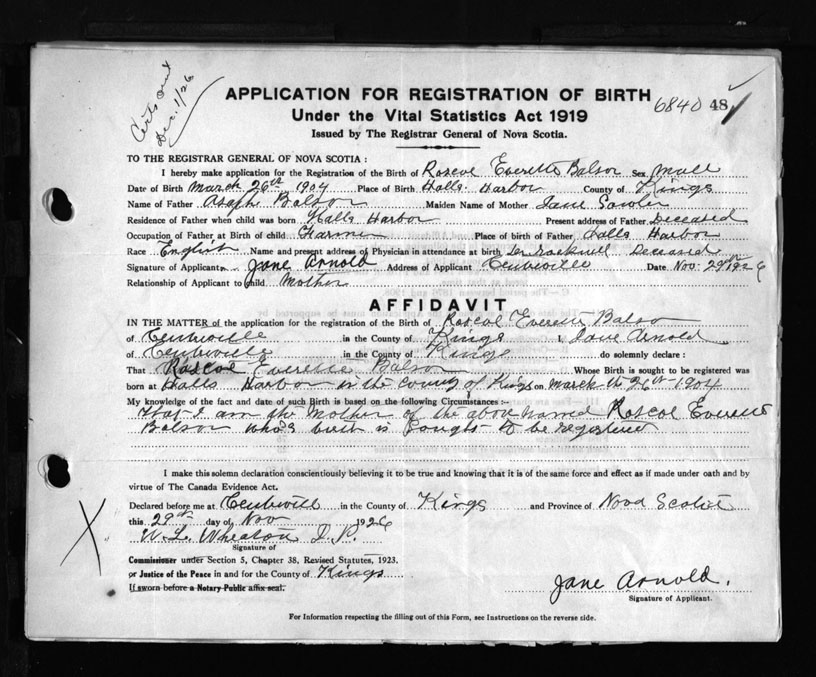 Certs sent
Dec. 1/26
APPLICATION FOR REGISTRATION OF BIRTH
6840 48
Under the Vital Statistics Act 1919
Issued by The Registrar General of Nova Scotia.
TO THE REGISTRAR GENERAL OF NOVA SCOTIA :
I hereby make application for the Registration of the Birth of Roscoe Everette Balsor Sex Male
Date of Birth March 26th 1904 Place of Birth Halls Harbor County of Kings
Name of Father Asaph Balsor Maiden Name of Mother Jane
Residence of Father when child was born Halls Harbor Present address of Father Deceased
Occupation of Father at Birth of child Farmer Place of birth of Father Halls Harbor
Race English Name and present address of Physician in attendance at birth Dr Rockwell Deceased
Signature of Applicant Jane Arnold Address of Applicant Centreville Date Nov. 29th 1926
Relationship of Applicant to child Mother
AFFIDAVIT
IN THE MATTER of the application for the registration of the Birth of Roscoe Everett Balsor
of Centreville in the County of Kings I, Jane Arnold
of Centreville in the County of Kings do solemnly declare :
That Roscoe Everette Balsor Whose Birth is sought to be registered was
born at Halls Harbor in the County of Kings on March the 26th 1904
My knowledge of the fact and date of such Birth is based on the following Circumstances :-
that I am the Mother of the above named Roscoe Everett
Balsor who's birth is sought to be registered
I make this solemn declaration conscientiously believing it to be true and knowing that it is of the same force and effect as if made under oath and by
virtue of The Canada Evidence Act.
Declared before me at Centrevill in the County of Kings and Province of Nova Scotia
this 29th day of Nov 1926
W. L. Wheaton J. P.
Signature of
Commissioner under Section 5, Chapter 38, Revised Statutes, 1923.
or Justice of the Peace in and for the County of Kings
If sworn before a Notary Public affix seal.
Jane Arnold.
Signature of Applicant.
For Information respecting the filling out of this Form, see Instructions on the reverse side.